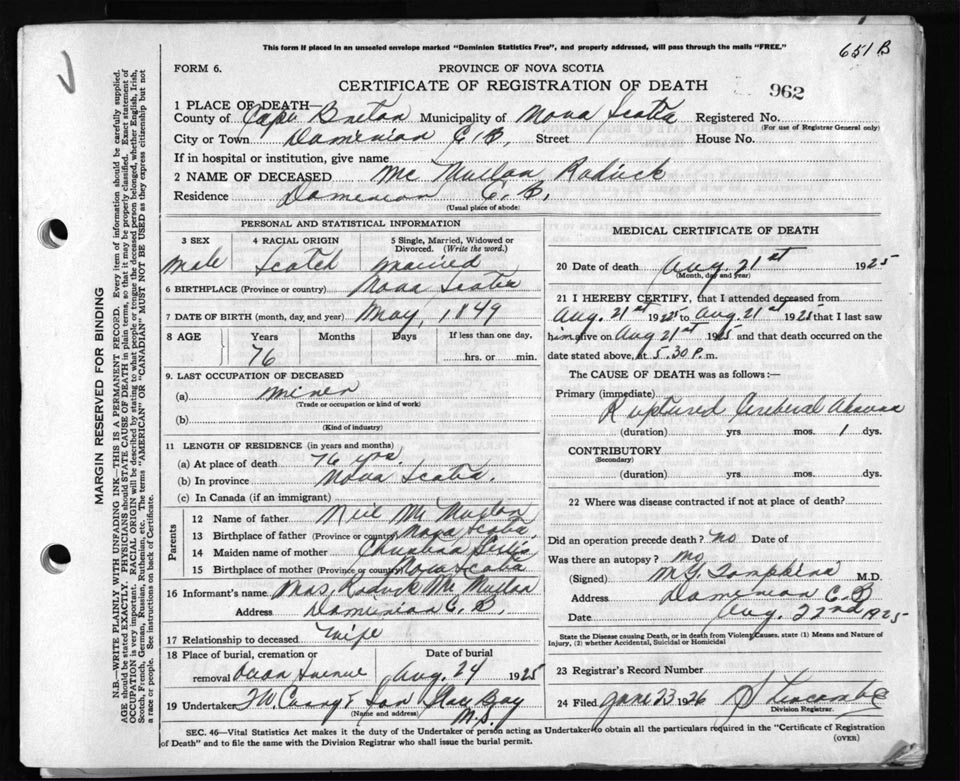 This form if placed in an unsealed envelope marked "Dominion Statistics Free", and properly addressed, will pass through the mails "FREE."
651 B
FORM 6.
PROVINCE OF NOVA SCOTIA
CERTIFICATE OF REGISTRATION OF DEATH
962
1 PLACE OF DEATH—
County of Cape Breton Municipality of Nova Scotia Registered No.
(For use of Registrar General only)
City or Town Dominion C. B. Street House No.
If in hospital or institution, give name
2 NAME OF DECEASED Mc Mullan Roderick
Residence Dominion C. B.
(Usual place of abode)
PERSONAL AND STATISTICAL INFORMATION
3 SEX Male
4 RACIAL ORIGIN Scotch
5 Single, Married, Widowed or Divorced. (Write the word.) Married
6 BIRTHPLACE (Province or country) Nova Scotia
7 DATE OF BIRTH (month, day, and year) May, 1849
8 AGE Years Months Days If less than one day,
76 hrs. or min.
9. LAST OCCUPATION OF DECEASED
(a) Miner
(Trade or occupation or kind of work)
(b)
(Kind of industry)
11 LENGTH OF RESIDENCE (in years and months)
(a) At place of death 76 yrs.
(b) In province Nova Scotia.
(c) In Canada (if an immigrant)
Parents
12 Name of father Neil Mc Mullan
13 Birthplace of father (Province or country) Nova Scotia
14 Maiden name of mother Christina
15 Birthplace of mother (Province or country) Nova Scotia
16 Informant's name Mrs. Roderick Mc Mullan
Address Dominion C. B.
17 Relationship to deceased Wife
18 Place of burial, cremation or removal Date of burial
Avenue Aug. 24 1925
19 Undertaker & Son Glace Bay
(Name and address) N.S.
MEDICAL CERTIFICATE OF DEATH
20 Date of death Aug. 21st 1925
(Month, day and year)
21 I HEREBY CERTIFY, that I attended deceased from
Aug. 21st 1925 to Aug 21st 1925 that I last saw
him alive on Aug 21st 1925 and that death occurred on the
date stated above, at 5.30 P.m.
The CAUSE OF DEATH was as follows:—
Primary (immediate)
Ruptured Cerebral
(duration) yrs. mos. 1 dys.
CONTRIBUTORY
(Secondary)
(duration) yrs. mos. dys.
22 Where was disease contracted if not at place of death?
Did an operation precede death? no Date of
Was there an autopsy? no
(Signed) M. G. Tompkins M.D.
Address Dominion C. B
Date Aug. 22nd 1925
State the Disease causing Death, or in death from Violent Causes, state (1) Means and Nature of
Injury, (2) whether Accidental, Suicidal or Homicidal
23 Registrar's Record Number
24 Filed June 23 1926
Division Registrar.
SEC. 46—Vital Statistics Act makes it the duty of the Undertaker or person acting as Undertaker to obtain all the particulars required in the "Certificate of Registration
of Death" and to file the same with the Division Registrar who shall issue the burial permit.
(OVER)
MARGIN RESERVED FOR BINDING
N.B.—WRITE PLAINLY WITH UNFADING INK—THIS IS A PERMANENT RECORD. Every item of information should be carefully supplied.
AGE should be stated EXACTLY. PHYSICIANS should STATE CAUSE OF DEATH in plain terms, so that it may be properly classified. Exact statement of
OCCUPATION is very important. RACIAL ORIGIN will be described by stating to what people or tongue the deceased person belonged, whether English, Irish,
Scotch, French, German, Russian, Ruthenian, etc. The terms "AMERICAN" OR "CANADIAN" MUST NOT BE USED as they express citizenship but not
a race or people. See instructions on back of Certificate.